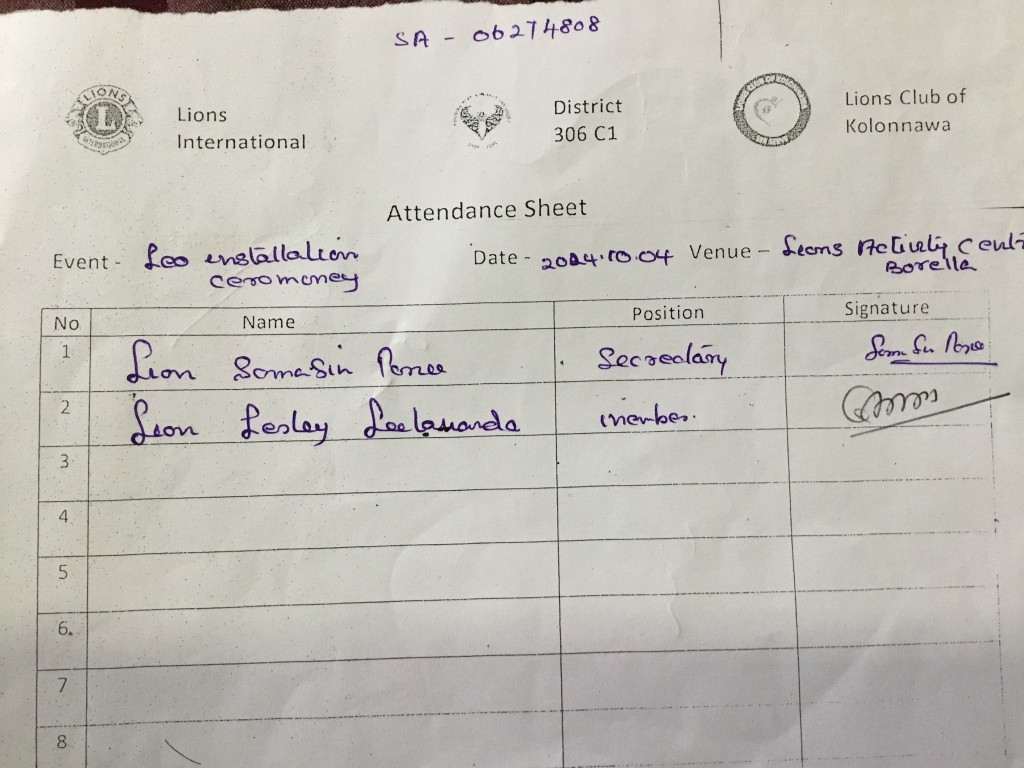 SA - 06274808
LIONS
L
INTERNATIONAL
Lions
International
District
306 C1
Lions Club of
Kolonnawa
Attendance Sheet
Event - Leo installation
ceromoney
Date - 2024.10.04
Venue - Lions Activity Cent
Borella
No Name Position Signature
1 Lion Somasin Secrectary
2 Lion Lesley Leelananda member.
3
4
5
6.
7
8